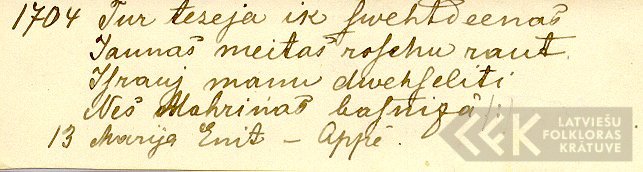 1704 Tur tezeja ik swehtdeenas
Jaunas meitas roschu raut.
Israuj manu dwehseliti
Nes Mahrinas basnizā /:/
13 Marija Enit – Appē.
LATVIEŠU
FOLKLORAS
KRĀTUVE